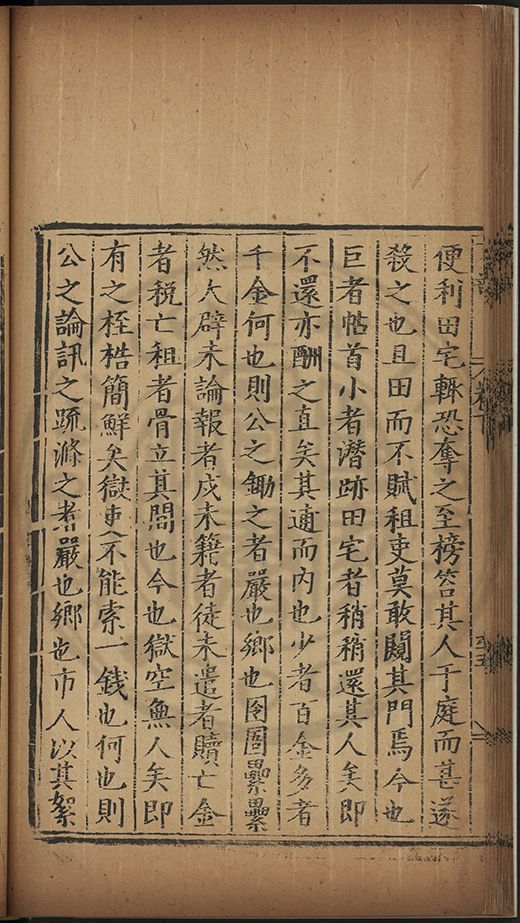 便利田宅輒恐奪之至榜笞其人于庭而甚遂
殺之也且田而不賦租吏莫敢闚其門焉今也
巨者帖首小者潛跡田宅者稍稍還其人矣即
不還亦酬之直矣其逋而內也少者百金多者
千金何也則公之鋤之者嚴也鄉也囹圄纍纍
然大辟未論報者戍未籍者徒未遣者贖亡金
者稅亡租者骨立其間也今也獄空無人矣即
有之桎梏簡鮮矣獄吏不能索一錢也何也則
公之論訊之疏滌之者嚴也鄉也市人以其絮